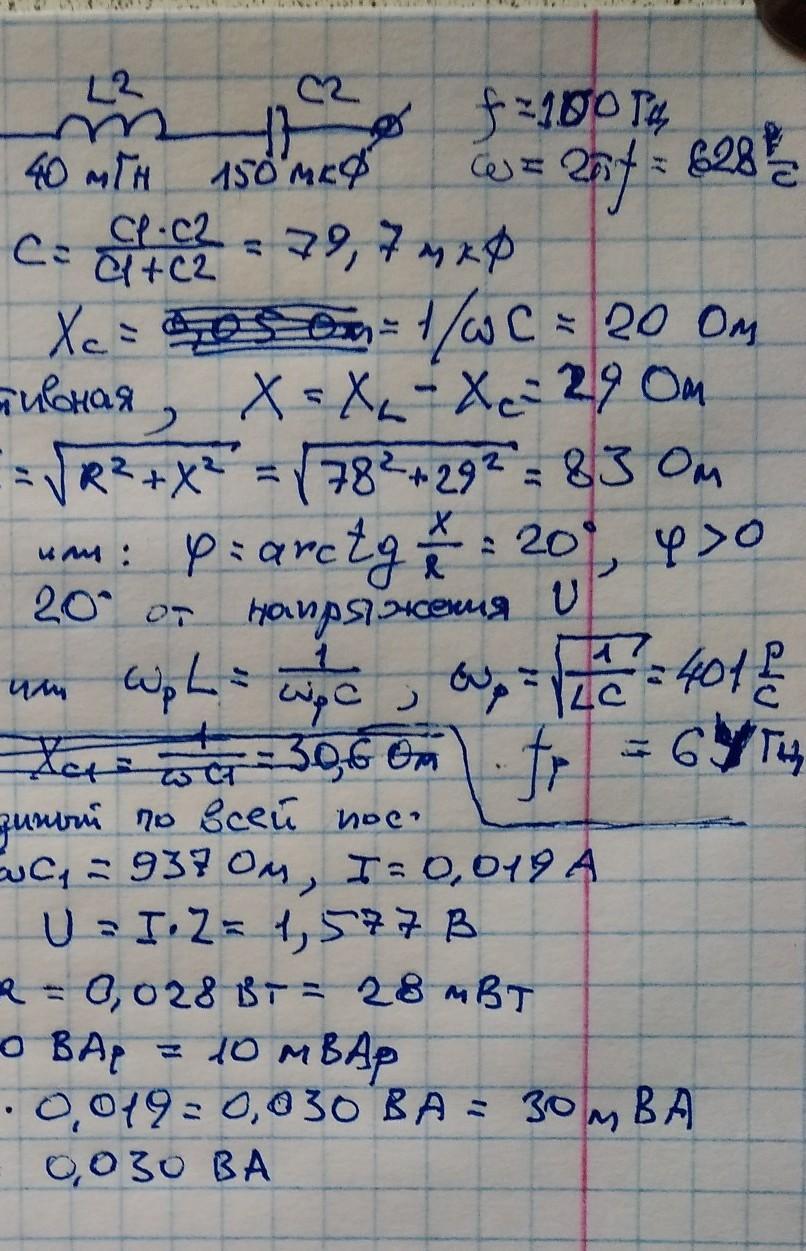 L2 C2 f = 100 Гц
40 мГн 150 мкФ ω = 2πf = 628 Р/с
C = C1·C2/C1+C2 = 79,7 мкФ
Xc = = 1/ωC = 20 Ом
тивная, X = XL - Xc = 29 Ом
= √R²+X² = √78²+29² = 83 Ом
или: φ = arctg X/R = 20°, φ>0
20° от напряжения U
или ωрL = 1/ωрC, ωр = √1/LC = 401 Р/с
Xc1 = 1/ωC1 = 30,6 Ом fр = 64 Гц
по всей пос.
ωC1 = 937 Ом, I = 0,019 А
U = I·Z = 1,577 В
R = 0,028 Вт = 28 мВт
0 ВАр = 10 мВАр
· 0,019 = 0,030 ВА = 30 мВА
0,030 ВА